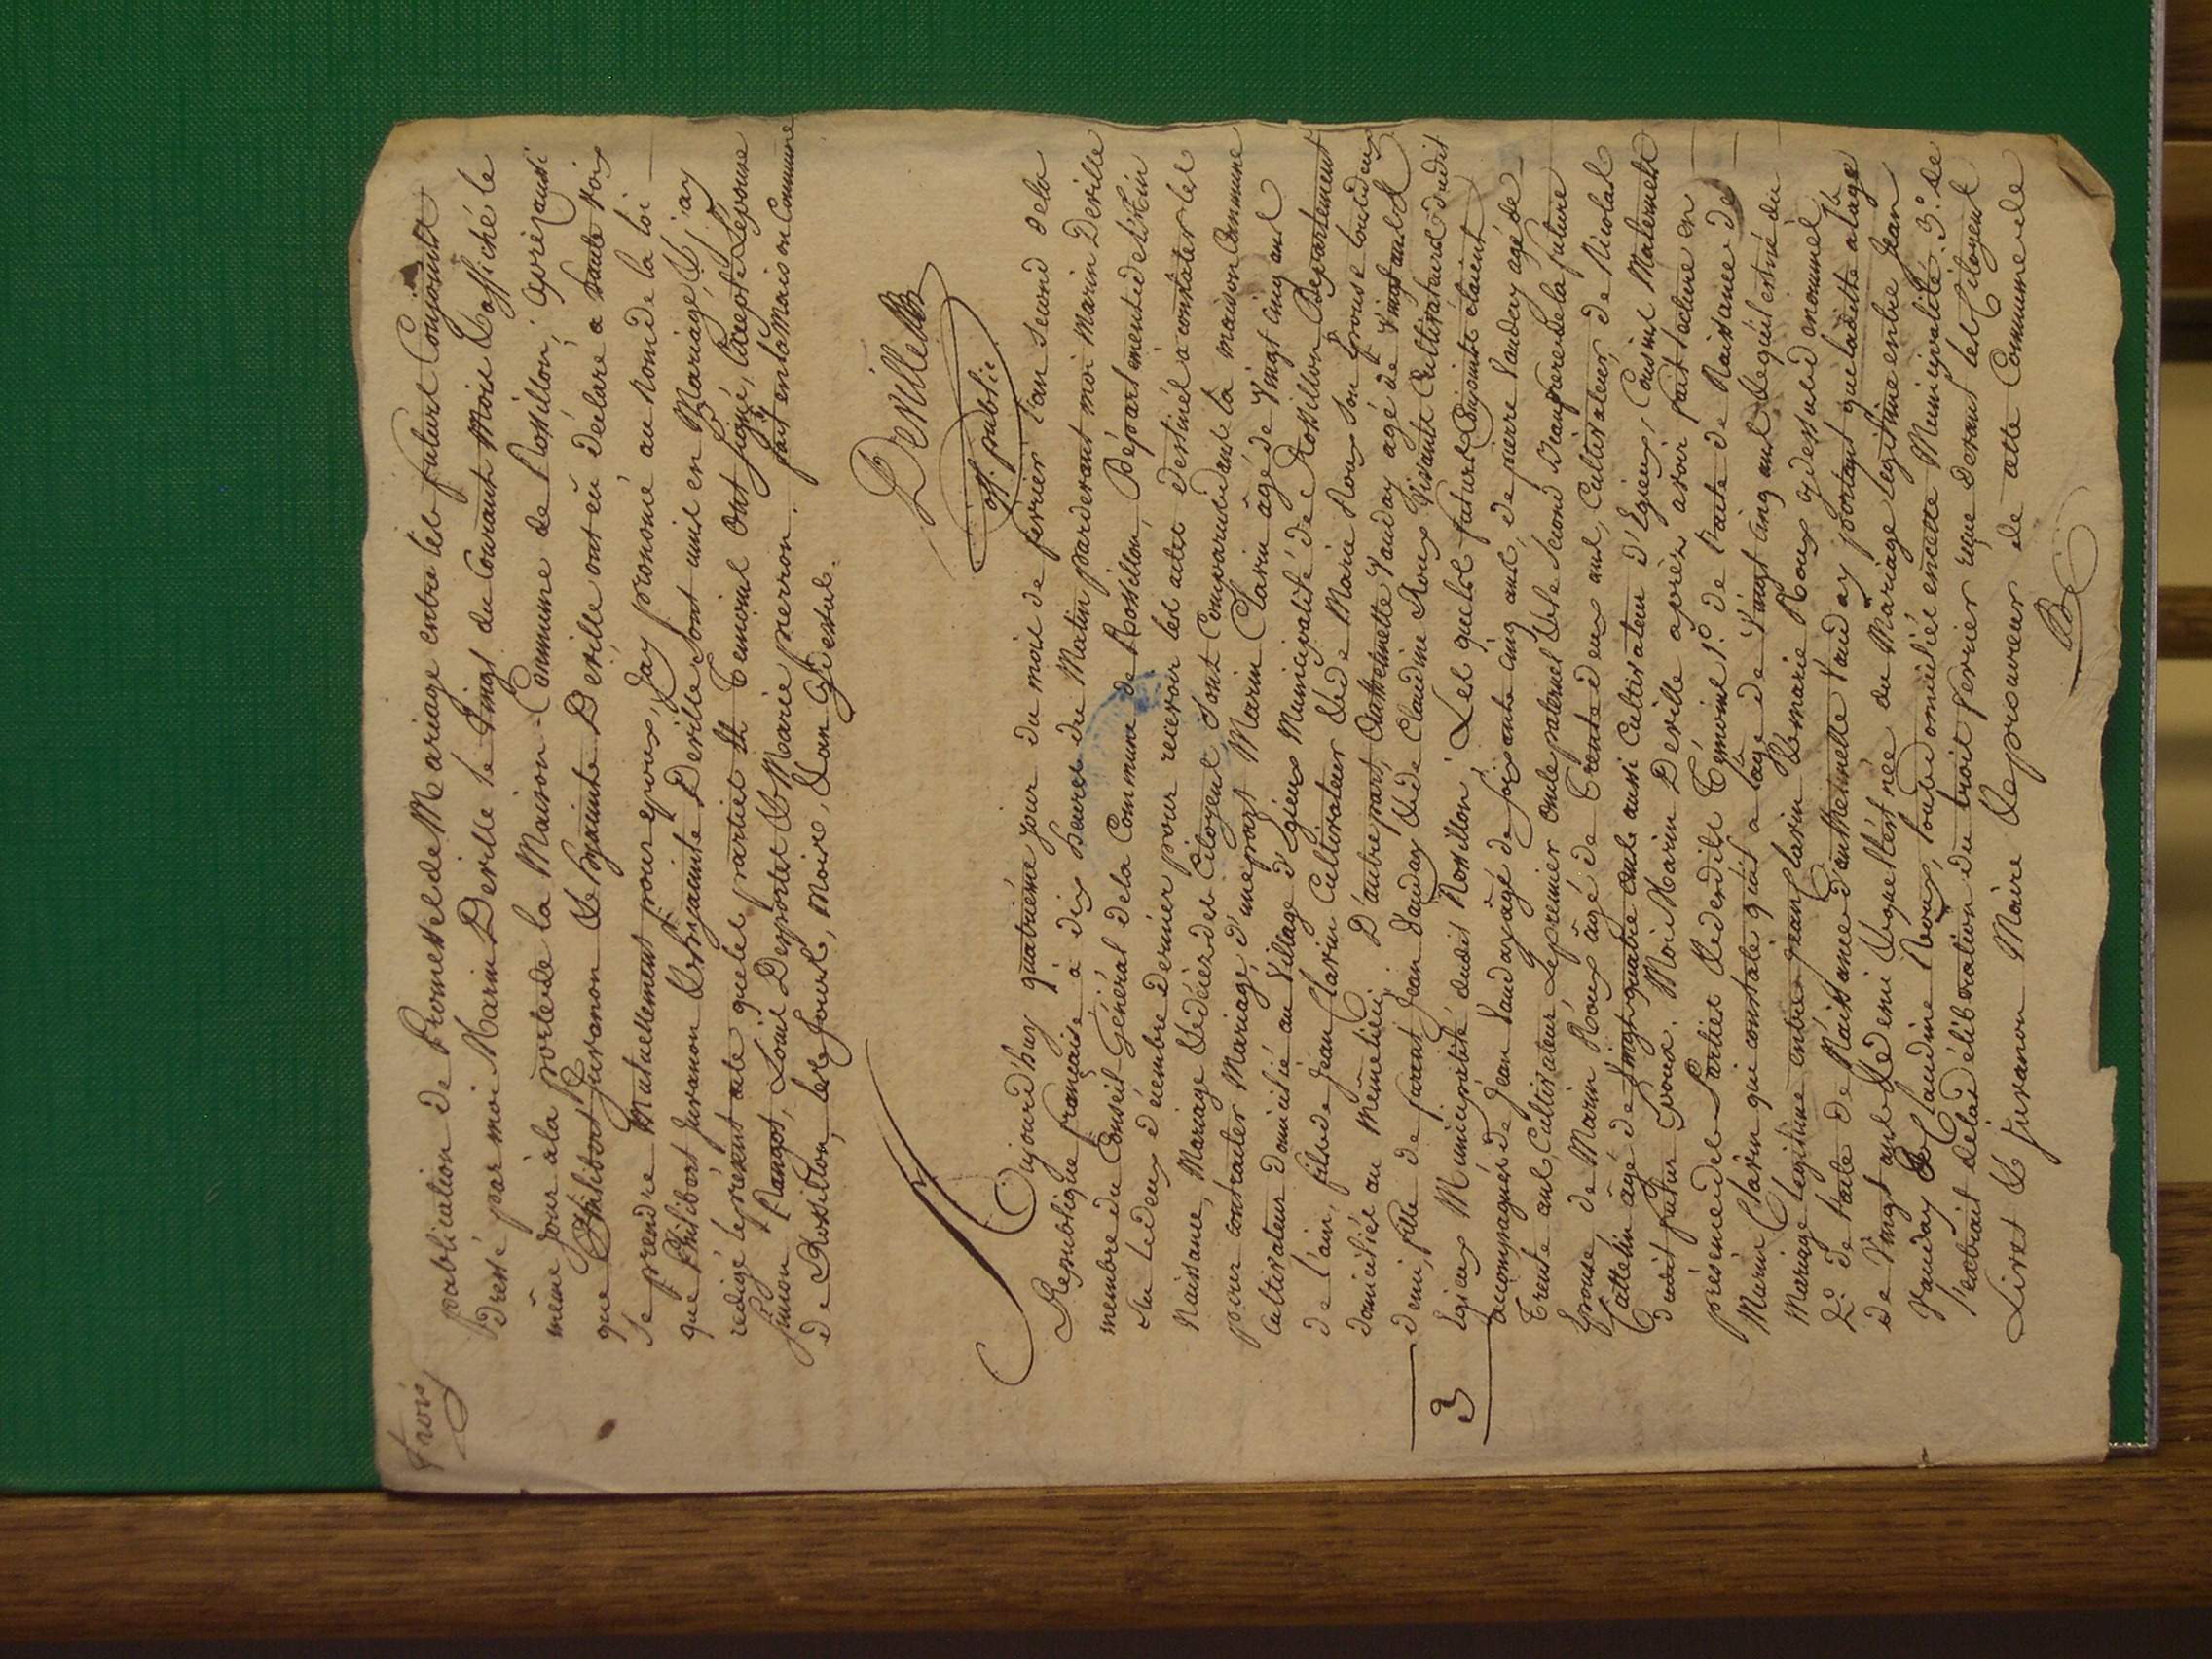 trois
publication de Promesse de Mariage entre les futurs Conjoints
Dressé par moi Marin Deville le Vingt du Courant Mois & affiché le
même jour à la porte de la Maison Commune de Rossillon; après aussi
que Philibert Juvanon & hyacinte Deville ont eü déclaré a haute voix
se prendre Mutuellement pour epoux, J'ay prononcé au Nom de la loi
que Philibert Juvanon & hyacinte Deville sont unis en Mariage, & j'ay
redigé le présent acte que les parties & temoins ont signé, excepté Lepouse
simon Nangot, Louis Desportes & Marie perron. fait en la Maison Commune
de Rossillon, les jours, Mois, & an cy dessus.
Deville
off. public
Aujourd'huy quatrième jour du mois de fevrier l'an second de la
Republique française à dix heures du Matin pardevant moi Marin Deville
membre du Conseil Général de la Commune de Rossillon, Département de l'Ain
élu le deux décembre dernier pour recevoir les actes destinés a constater les
Naissance, Mariage & décès des Citoyens, sont Comparus dans la maison Commune
pour contracter Mariage, d'une part Marin Clarin âgé de Vingt cinq ans
Cultivateur domicilié au Village d'Egieux Municipalité de Rossillon Departement
de l'ain, fils de Jean Clarin Cultivateur & de Marie Roux son Epouse tous deux
domiciliés au Même lieu; D'autre part, Anthelmette Vauday agé de Vingt ans &
demi, fille de Jean Vauday & de Claudine Roux Vivants Cultivateurs dudit
Egieux Municipalité dudit Rossillon; Les quels futurs Conjoints étaient
3
accompagnés de Jean Vauday agé de soixante cinq ans, de pierre Vauday agé de
Trente ans, Cultivateur Le premier oncle paternel & le second Beaufrere de la future
Epouse de Marin Roux agé de Trente deux ans, Cultivateur, de Nicolas
Cattelin âgé de Vingt quatre ans aussi Cultivateur d'Egieux, Cousins Maternels
dudit futur Epoux. Moi Marin Deville après avoir fait lecture en
présence des Parties & desdits Témoins 1.° de l'acte de Naissance de
Marin Clarin qui constate qu'il a l'age de Vingt cinq ans & qu'il est né du
Mariage legitime entre Jean Clarin & marie Roux cy dessus dénommés
2.° de l'acte de Naissance d'anthelmette Vauday portant que ladite a l'age
de Vingt ans & Demi & quelle est née du Mariage legitime entre Jean
Vauday & Claudine Roux, tous domiciliés en cette Municipalité. 3.° de
l'extrait de la délibération du trois fevrier reçue devant les Citoyens
Livet & Juvanon Maire & procureur de cette Commune elle